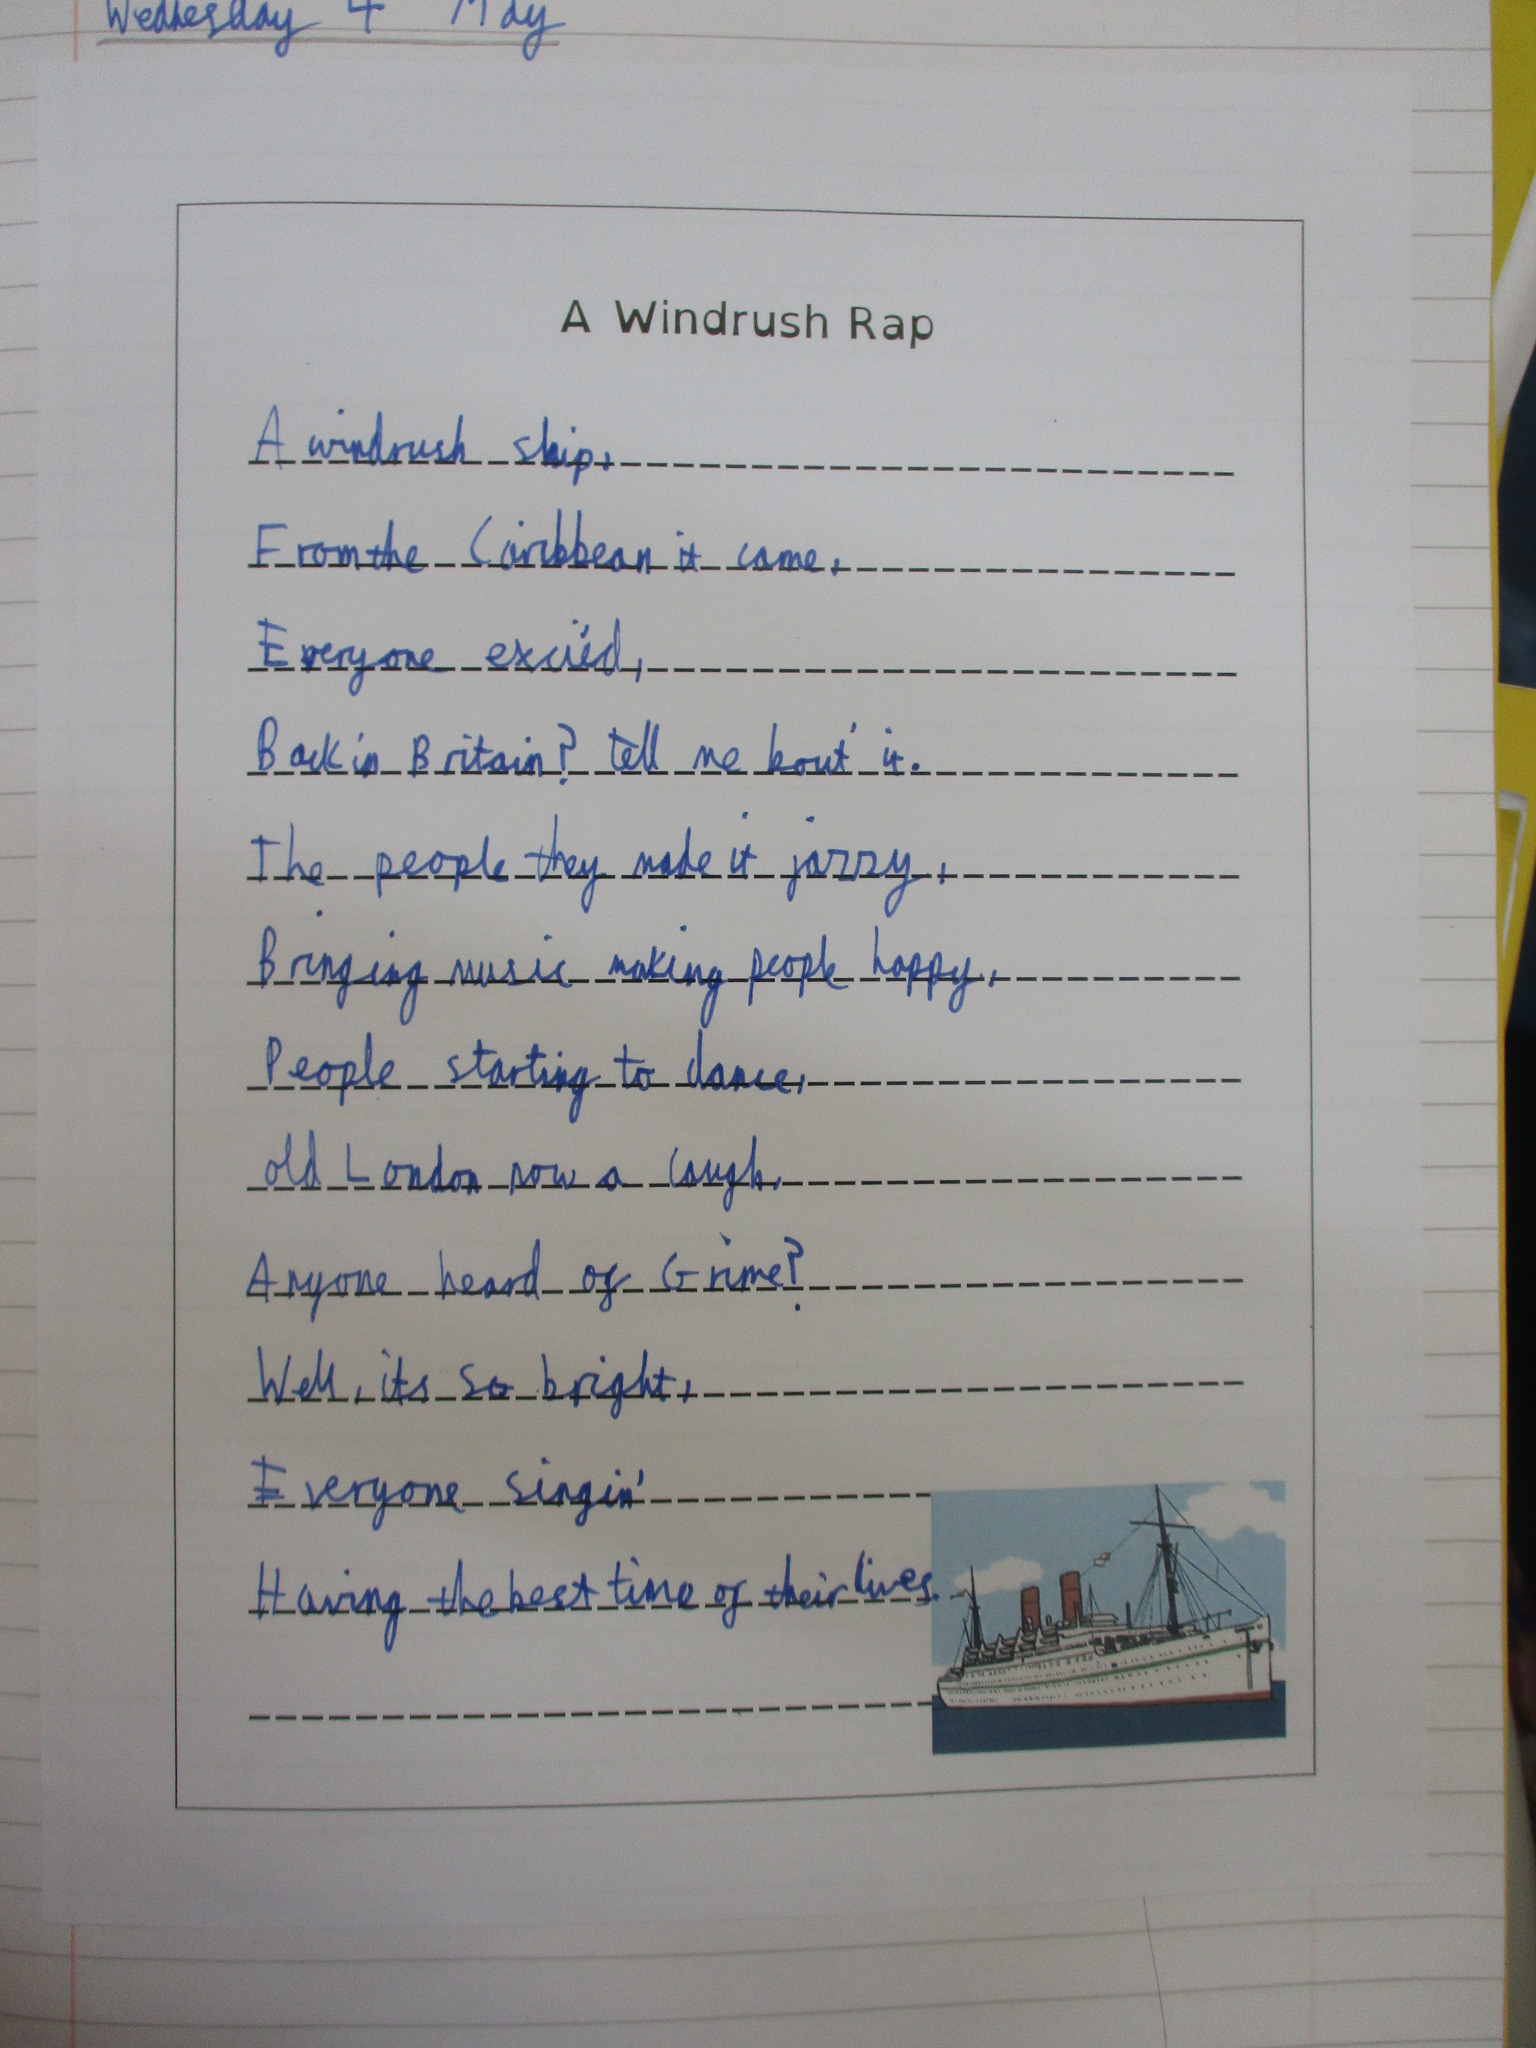 Wednesday 4 May
A Windrush Rap
A windrush ship,
From the Caribbean it came,
Everyone exci'ed,
Back in Britain? tell me bout' it.
The people they made it jazzy,
Bringing music making people happy,
People starting to dance,
old London now a laugh,
Anyone heard of Grime?
Well, its so bright,
Everyone singin'
Having the best time of their lives.